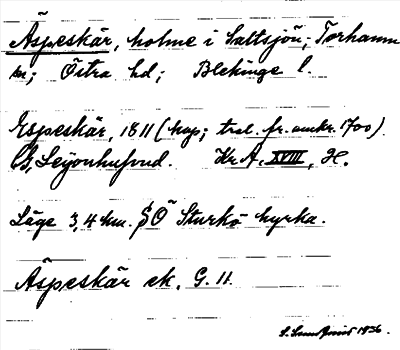 Äspeskär, holme i Saltsjön; Torhamn
sn; Östra hd; Blekinge l.
Espeskär, 1811 (kop; tral. fr. omkr. 1700).
G. Leijonhufvud. Kr. A. XVIII, H.
Läge 3,4 km. SÖ Sturkö kyrka.
Äspeskär ek. G. 11.
1936.